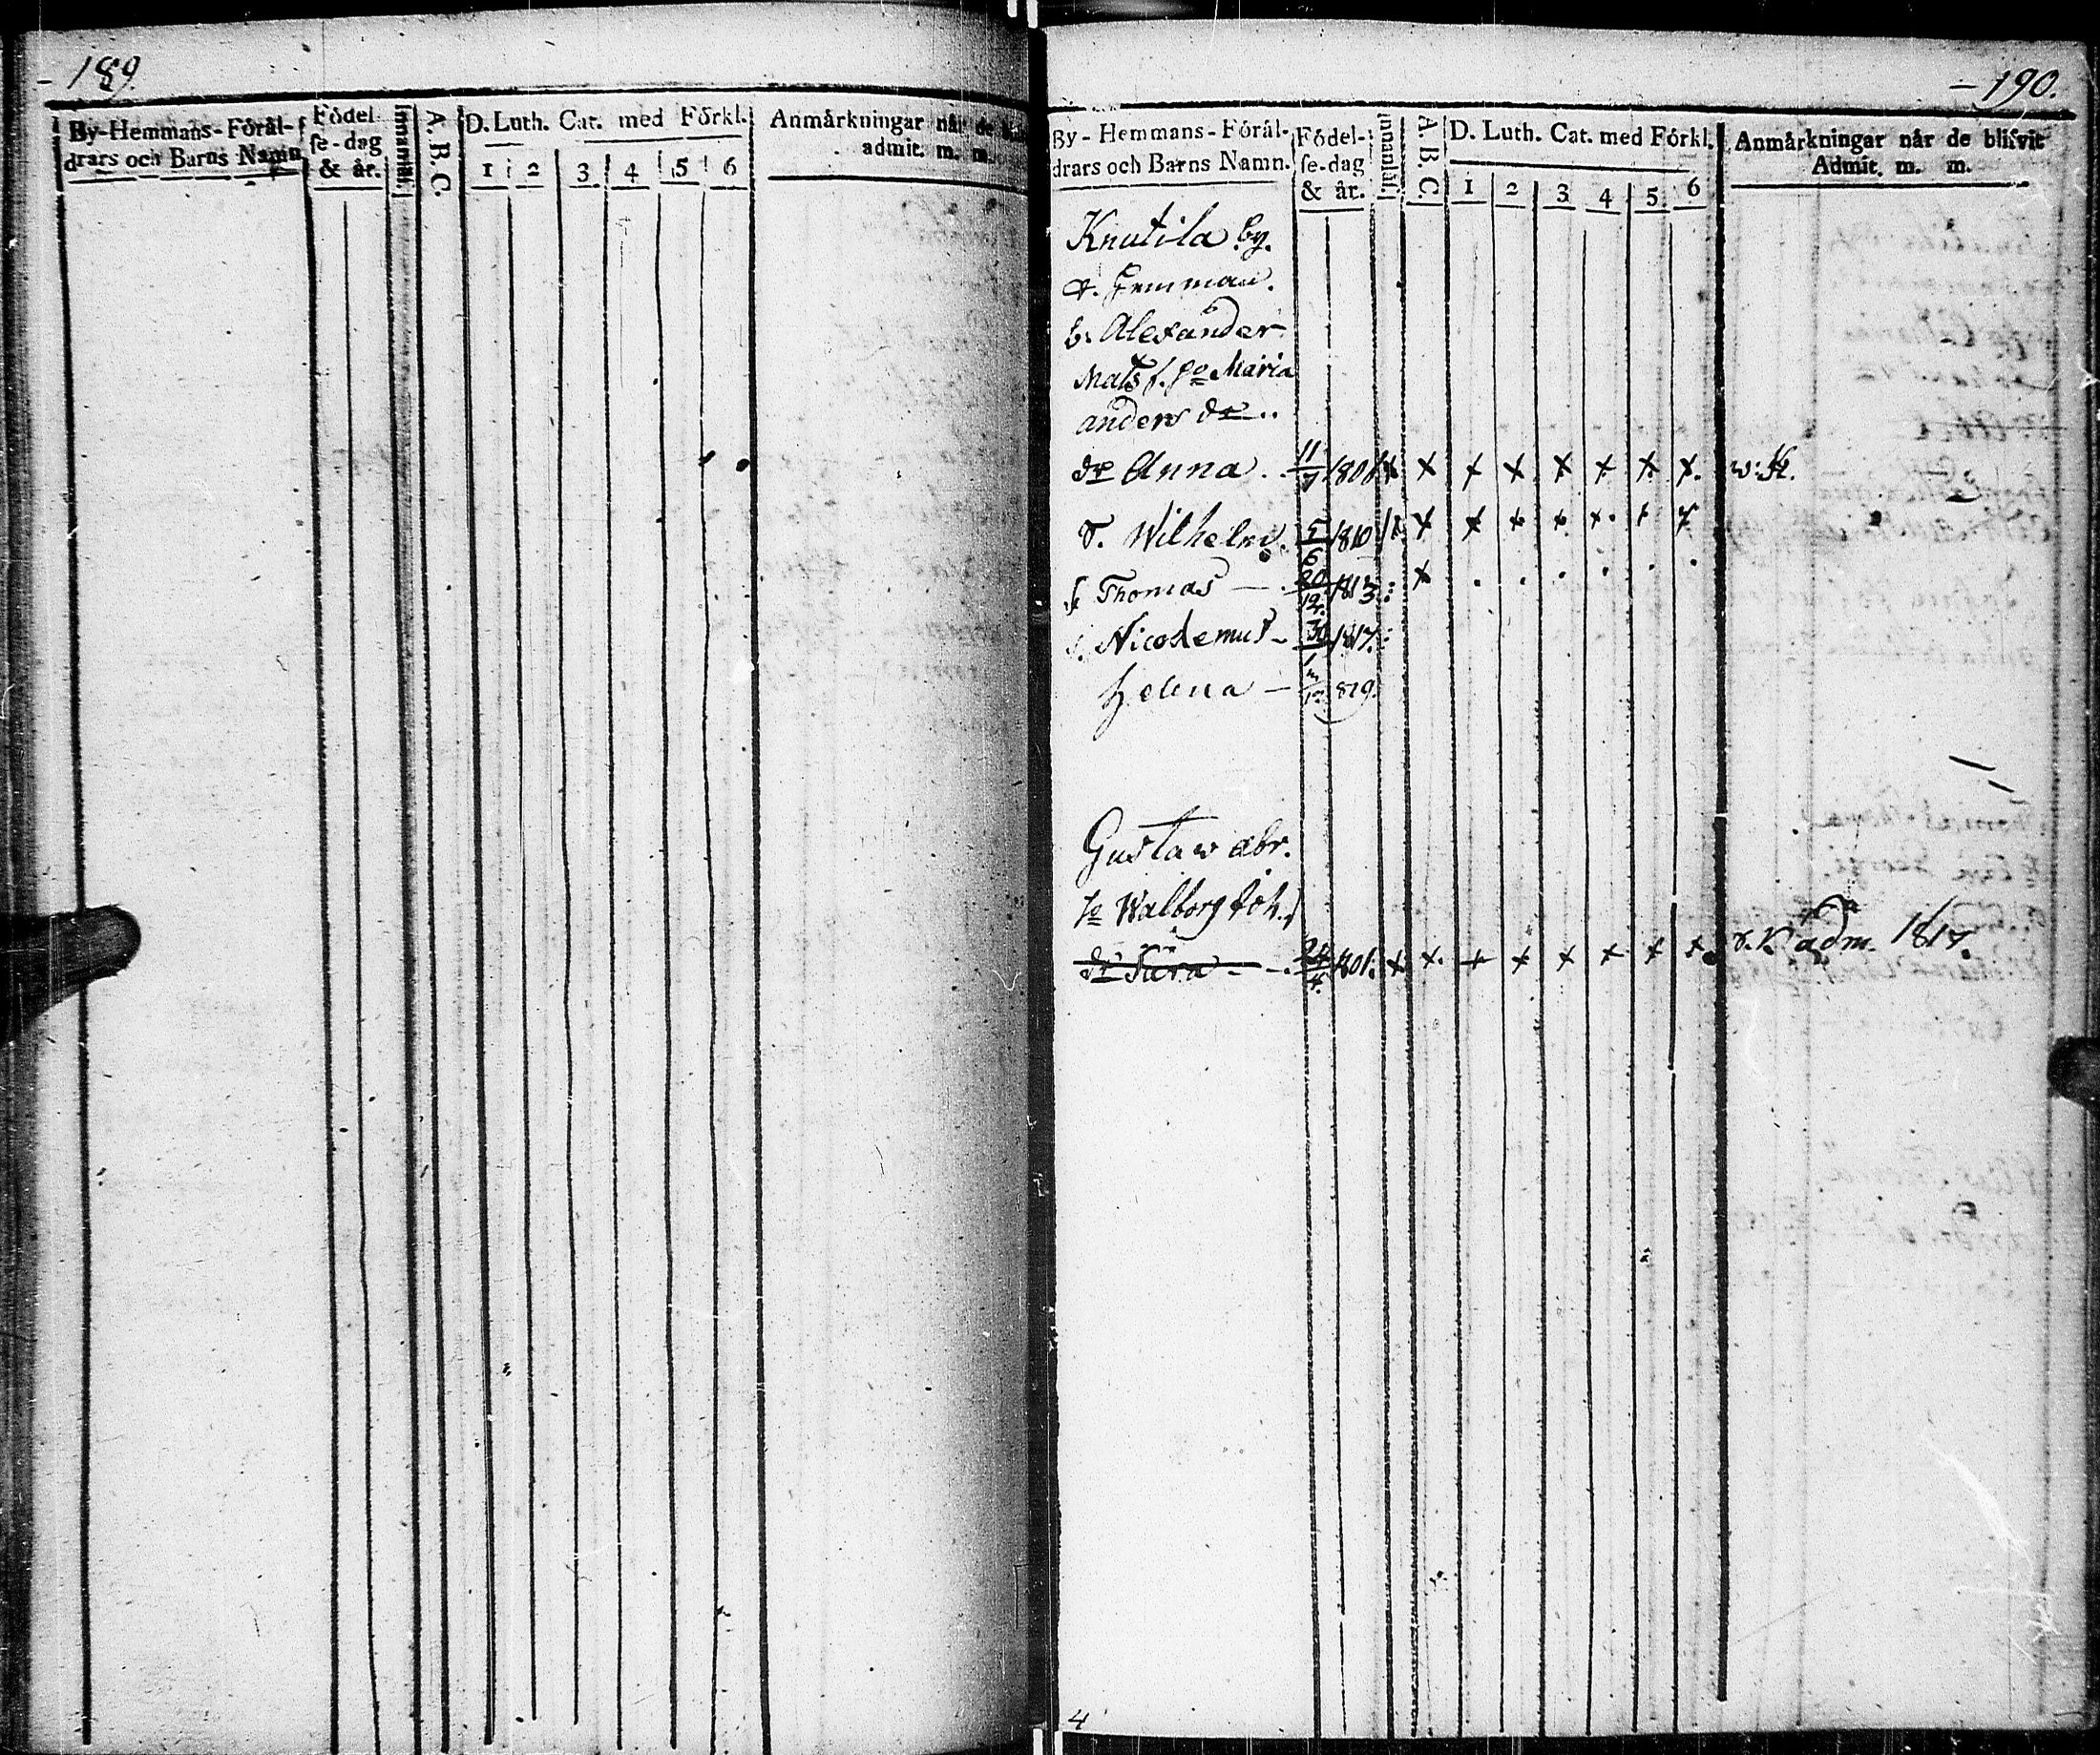 189.
By-Hemmans-Föräl-
drars och Barns Namn
Födel
se-dag
& år.
Innanläs.
A. B. C.
D. Luth. Cat. med Förkl.
1 2 3 4 5 6
Anmärkningar når de
admit. m. m.
190.
By-Hemmans-Föräl-
drars och Barns Namn.
Födel-
se-dag
& år.
Innanläs.
A. B. C.
D. Luth. Cat. med Förkl.
1 2 3 4 5 6
Anmärkningar når de blifvit
Admit. m. m.
Knutila by.
b. Alexander
Mats s. Maria
anders dr.
dr Anna 11/7 1801 x x x x x x x x.
Wilhelm 5/6 1810 x x x x x x x
s Thomas 20/12 1813 x
s. Nicodemus 1817.
Helena 1819.
Gustaw abr.
Walborg Joh.
dr Sara 24/4 1801. x x x x x x x x adm. 1817.
4